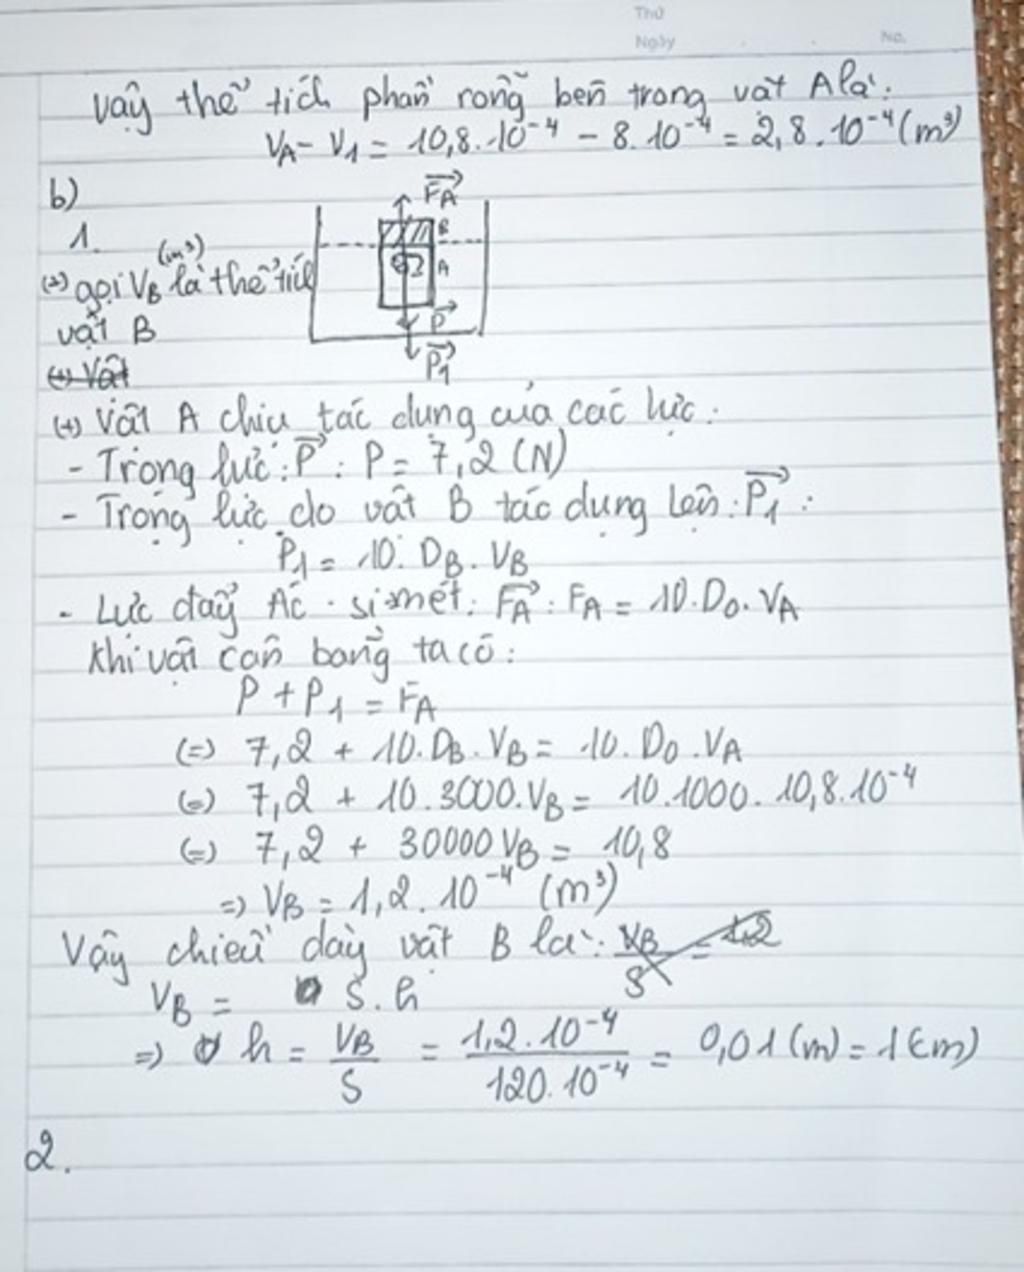 Thứ
Ngày No.
Vậy thể tích phần rỗng bên trong vật A là:
VA - V1 = 10,8.10⁻⁴ - 8.10⁻⁴ = 2,8.10⁻⁴ (m³)
b)
FA
1.
B
(m³)
(+) gọi VB là thể tích
A
vật B
P
(+) Vật
P1
(+) Vật A chịu tác dụng của các lực:
- Trọng lực: P : P = 7,2 (N)
- Trọng lực do vật B tác dụng lên: P1 :
P1 = 10. DB. VB
- Lực đẩy Ác-si-mét: FA : FA = 10.D0.VA
Khi vật cân bằng ta có:
P + P1 = FA
(=) 7,2 + 10.DB.VB = 10.D0.VA
(=) 7,2 + 10.3000.VB = 10.1000.10,8.10⁻⁴
(=) 7,2 + 30000VB = 10,8
=) VB = 1,2.10⁻⁴ (m³)
Vậy chiều dày vật B là: VB/S = 1,2
VB = S.h
=) h = VB/S = 1,2.10⁻⁴/120.10⁻⁴ = 0,01 (m) = 1 (cm)
2.